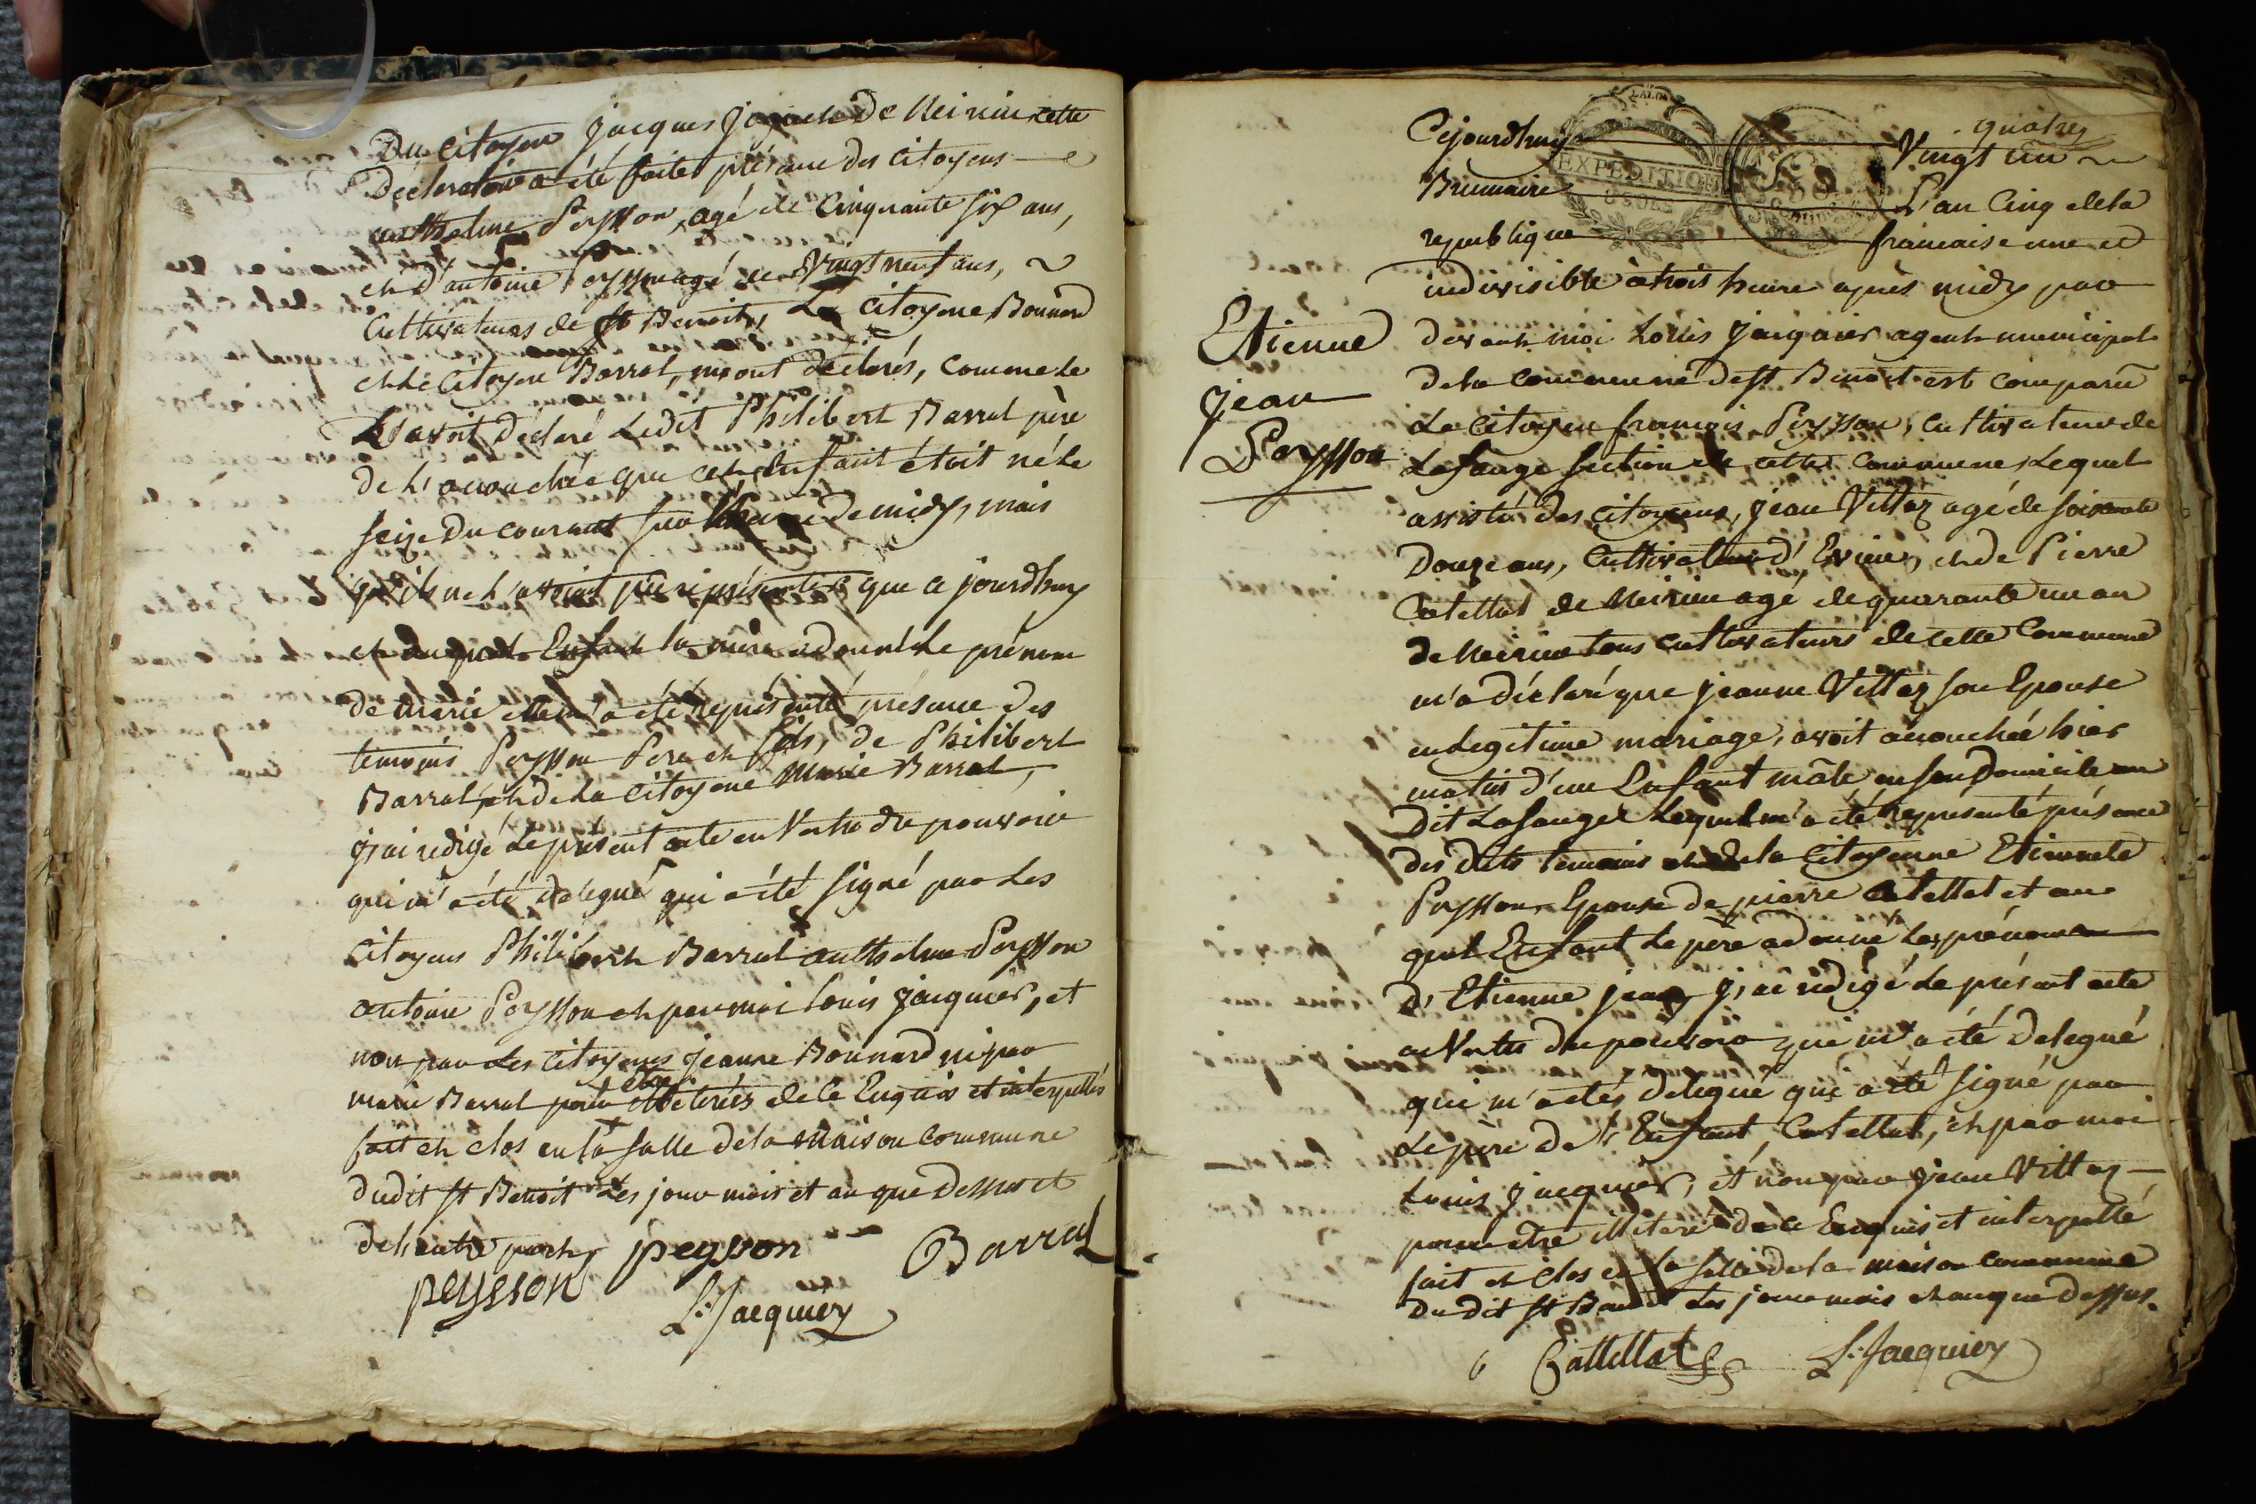 Du Citoyen jacques joguet de Meirieu cette
Déclaration a été faite présence des Citoyens
anthelme Peysson, agé de Cinquante six ans,
et d'antoine Peysson agé de Vingt neuf ans,
Cultivateurs de St Benoit, La Citoyene Bonnard
et le Citoyen Barral, m'ont déclarés, comme le
L'avoit déclaré Ledit Philibert Barral père
de l'acouchée que cet Enfant étoit né le
seize du courant sur de midy, mais
qu'ils ne l'avoint pû représenter que ce jourdhuy
et auquel Enfant la mère a donné le prénom
de marie elle m'a été représenté présence des
temoins Peysson Pere et fils, de Philibert
Barral, et de la Citoyene Marie Barral,
j'ai rédigé Le présent acte en Vertu du pouvoir
qui m'a été délegué qui a été signé par Les
Citoyens Philibert Barral anthelme Peysson
antoine Peysson et par moi Louis jacquier, et
non par Les Citoyenes jeanne Bonnard ni par
marie Barral pour être illeterées de ce Enquis et interpellés
fait et clos en la salle de la maison Commune
dudit St Benoit Les jour mois et an que Dessus et
de l'autre part
peyson
Barral
peysson
L. Jacquier
quatre
Cejourdhuy Vingt un
EXPEDITION
Brumaire L'an Cinq de la
republique francaise une et
indivisible à trois heure après midy par
devant moi Louis jacquier agent municipal
de la commune de St Benoit est comparu
Le Citoyen francois Peysson, cultivateur de
Lasauge section de cette commune, Lequel
assisté des Citoyens, jean Vittoz agé de soixante
Douze ans, Cultivateur d'Evieu, et de Pierre
Catellat de Meirieu agé de quarante un an
de Meirieu tous cultivateurs de cette Commune
m'a déclaré que jeanne Vittoz son Epouse
en legitime mariage, avoit acouchée hier
matin d'un Enfant mâle en son Domicile au
Dit Lasauge Lequel m'a été représenté présence
des dits temoins et de la Citoyenne Etiennete
Peysson Epouse de pierre Catellat et au
quel Enfant Le père a donné Les prénoms
D'Etienne jean j'ai rédigé Le présent acte
en Vertu du pouvoir qui m'a été délegué
qui m'a étés délegué qui a été signé par
Le père de l'Enfant, Catellat, et par moi
Louis jacquier, et non par jean Vittoz
pour être illeteré de ce Enquis et interpellé
fait et clos en la salle de la maison commune
dudit St Benoit Les jour mois et an que Dessus.
Cattellat
L. Jacquier
Etienne
Jean
Peysson